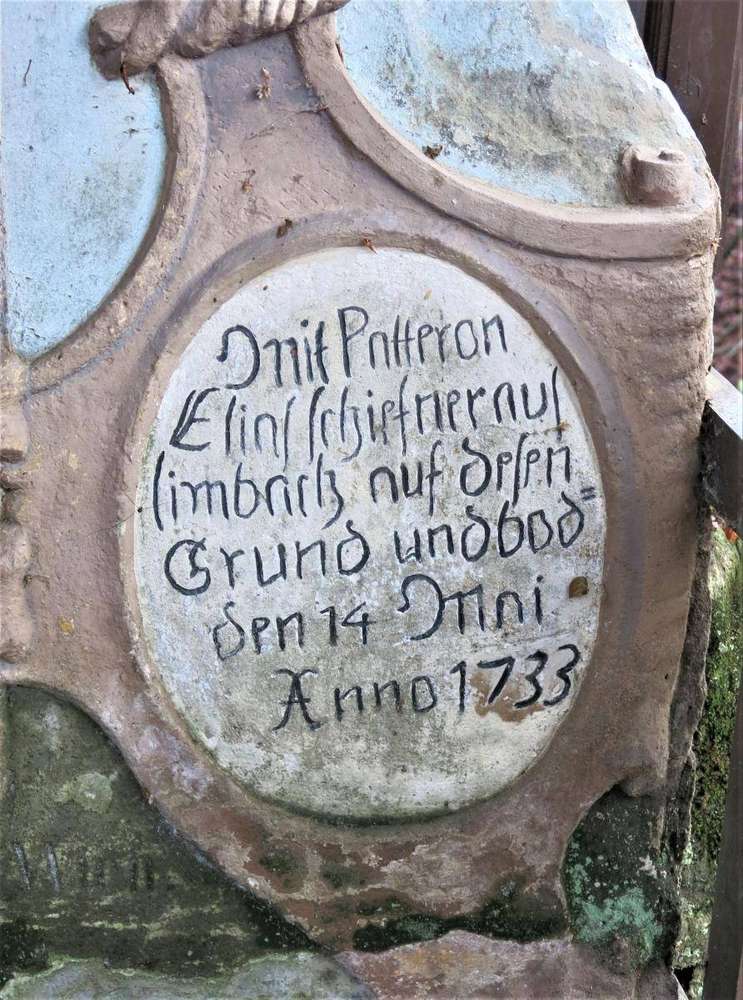 Mit Patteron
Elias schiefner aus
limbach auf desen
Grund und bod=
den 14 Mai
Anno 1733